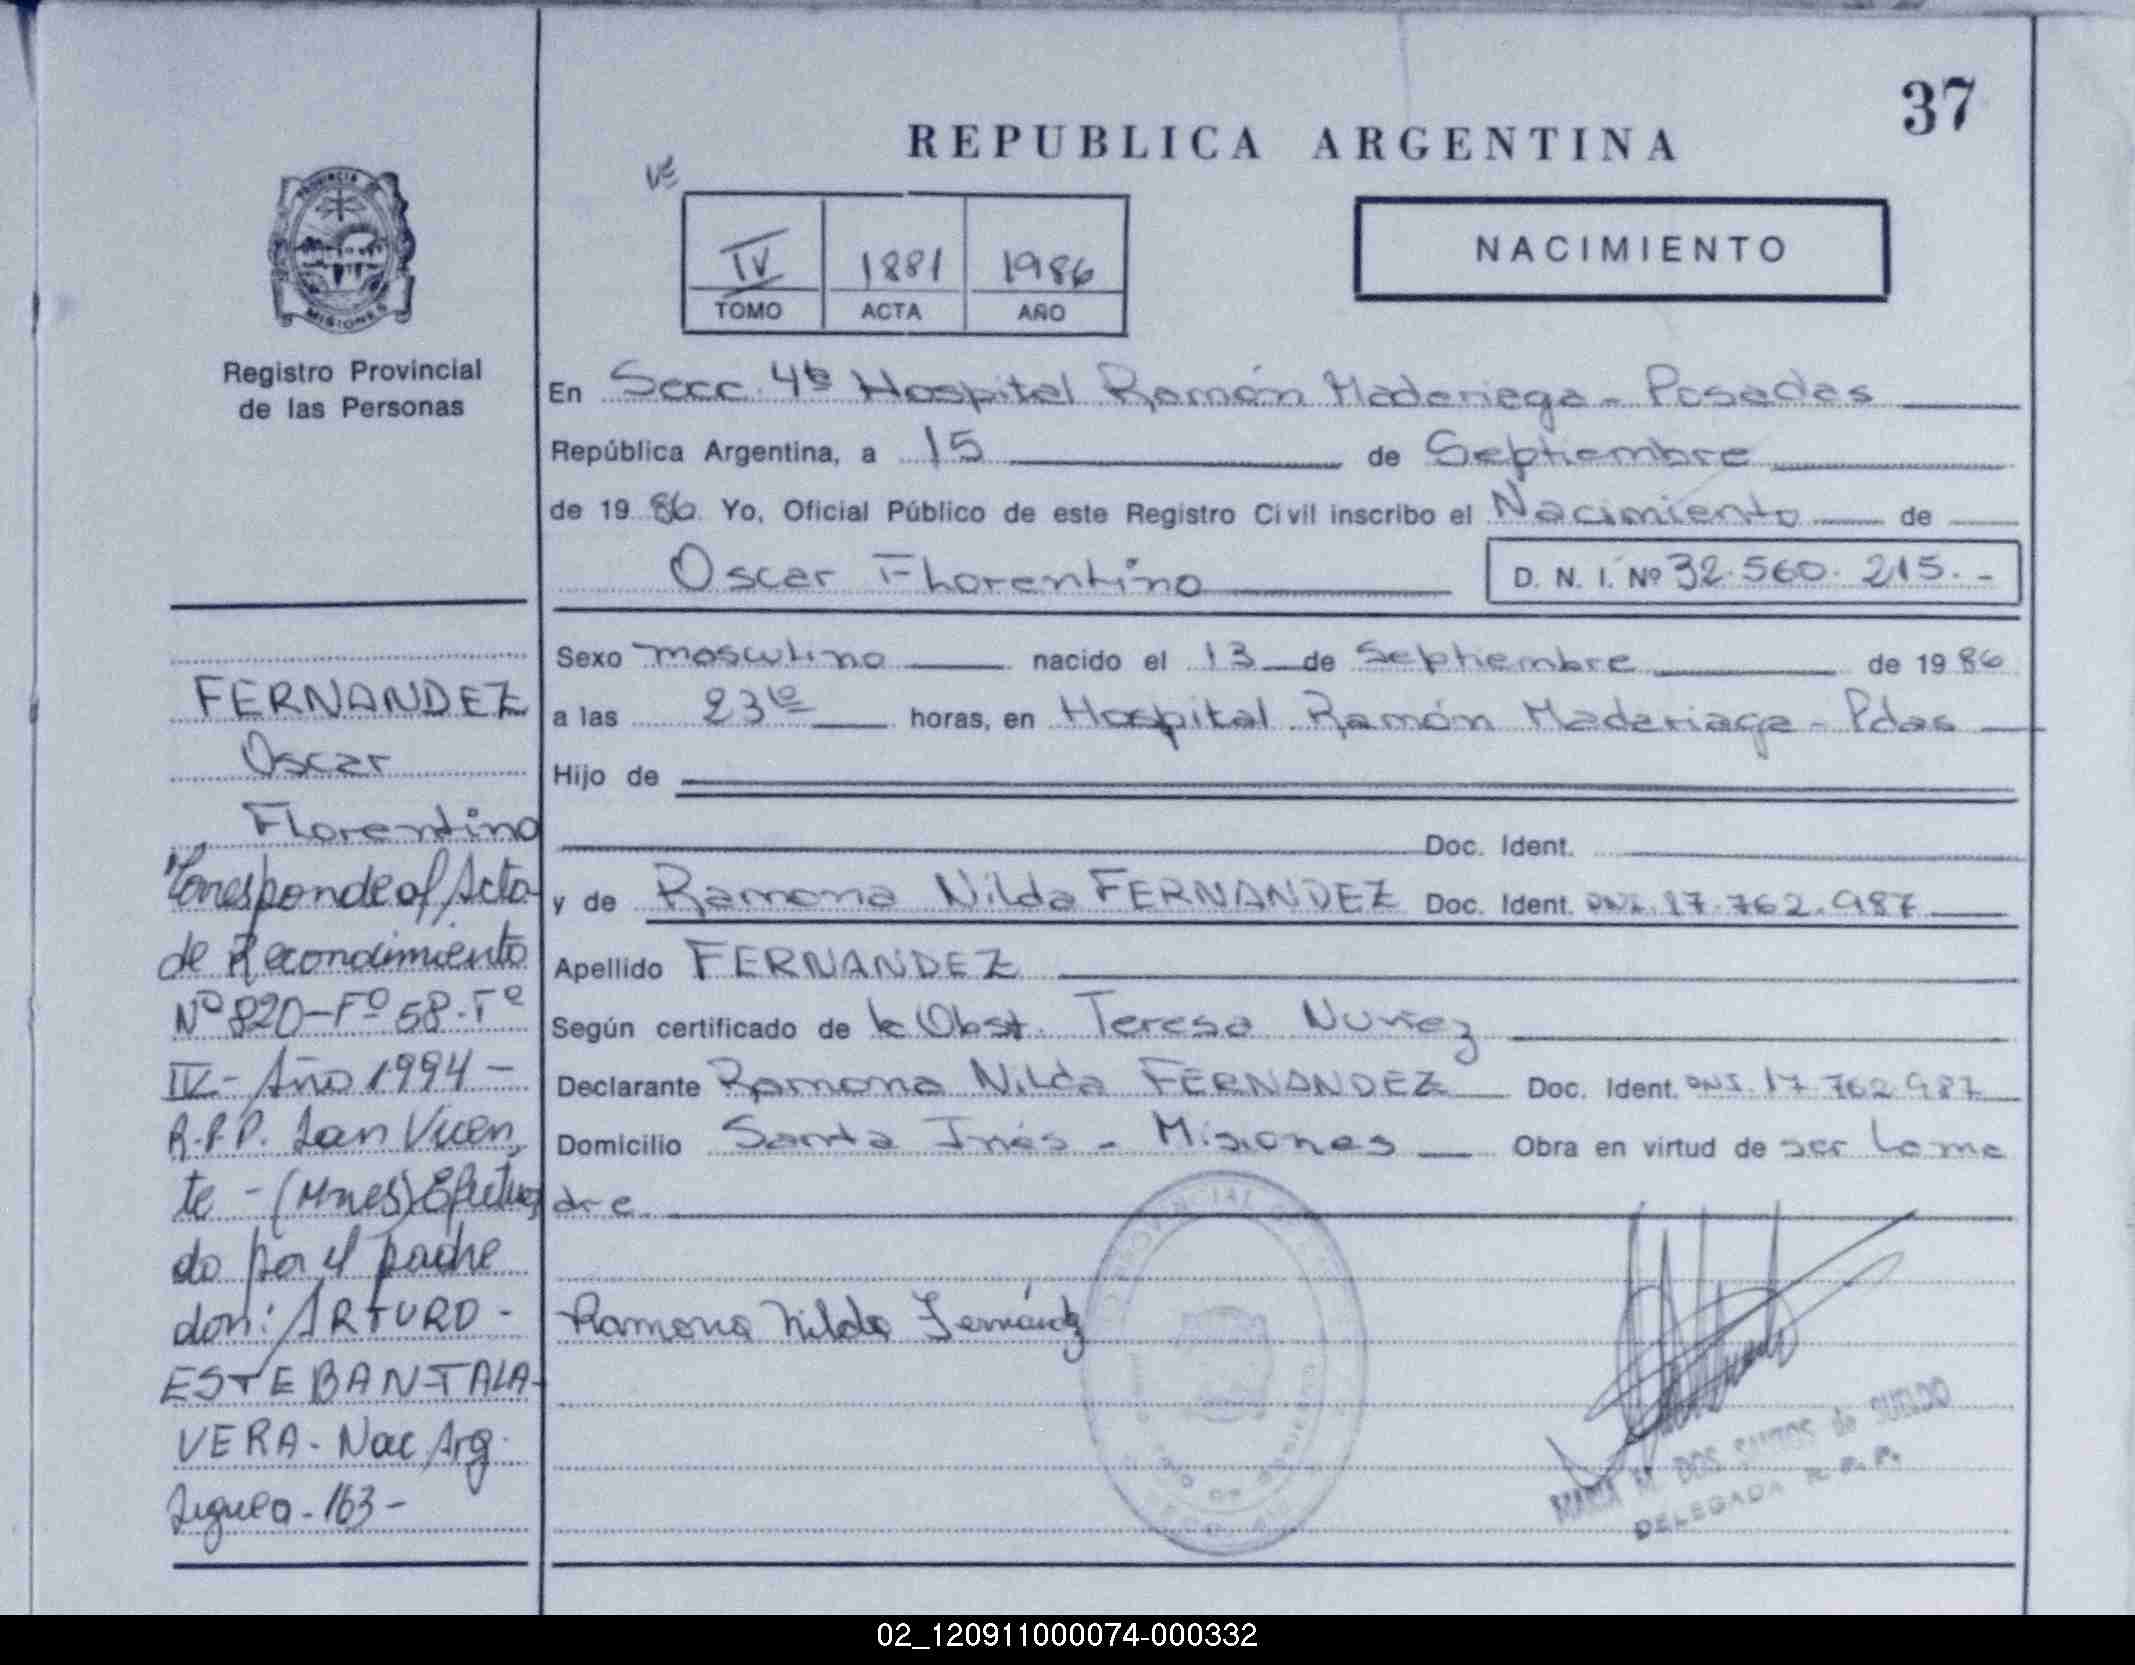 37
REPUBLICA ARGENTINA
NACIMIENTO
IV 1881 1986
TOMO ACTA AÑO
PROVINCIA DE
MISIONES
Registro Provincial
de las Personas
En Secc. 4ta Hospital Ramón Madariaga - Posadas
República Argentina, a 15 de Septiembre
de 1986 Yo, Oficial Público de este Registro Civil inscribo el Nacimiento de
Oscar Florentino D. N. I. Nº 32.560.215.-
Sexo masculino nacido el 13 de Septiembre de 1986
a las 23 horas, en Hospital Ramón Madariaga - Pdas
Hijo de
Doc. Ident.
y de Ramona Nilda FERNANDEZ Doc. Ident. DNI. 17.762.987
Apellido FERNANDEZ
Según certificado de la Obst. Teresa Nuñez
Declarante Ramona Nilda FERNANDEZ Doc. Ident. DNI. 17.762.987
Domicilio Santa Inés - Misiones Obra en virtud de ser la ma
dre
Ramona Nilda Fernández
MARIA M. DOS SANTOS de SUELDO
DELEGADA R. P. P.
FERNANDEZ
Oscar
Florentino
Corresponde al Acta
de Reconocimiento
Nº 820-Fº 58-Tº
IV- Año 1994-
R.P.P. San Vicen
te - (Mnes) Efectua
do por el padre
don: ARTURO-
ESTEBAN TALA-
VERA - Nac Arg.
02_120911000074-000332